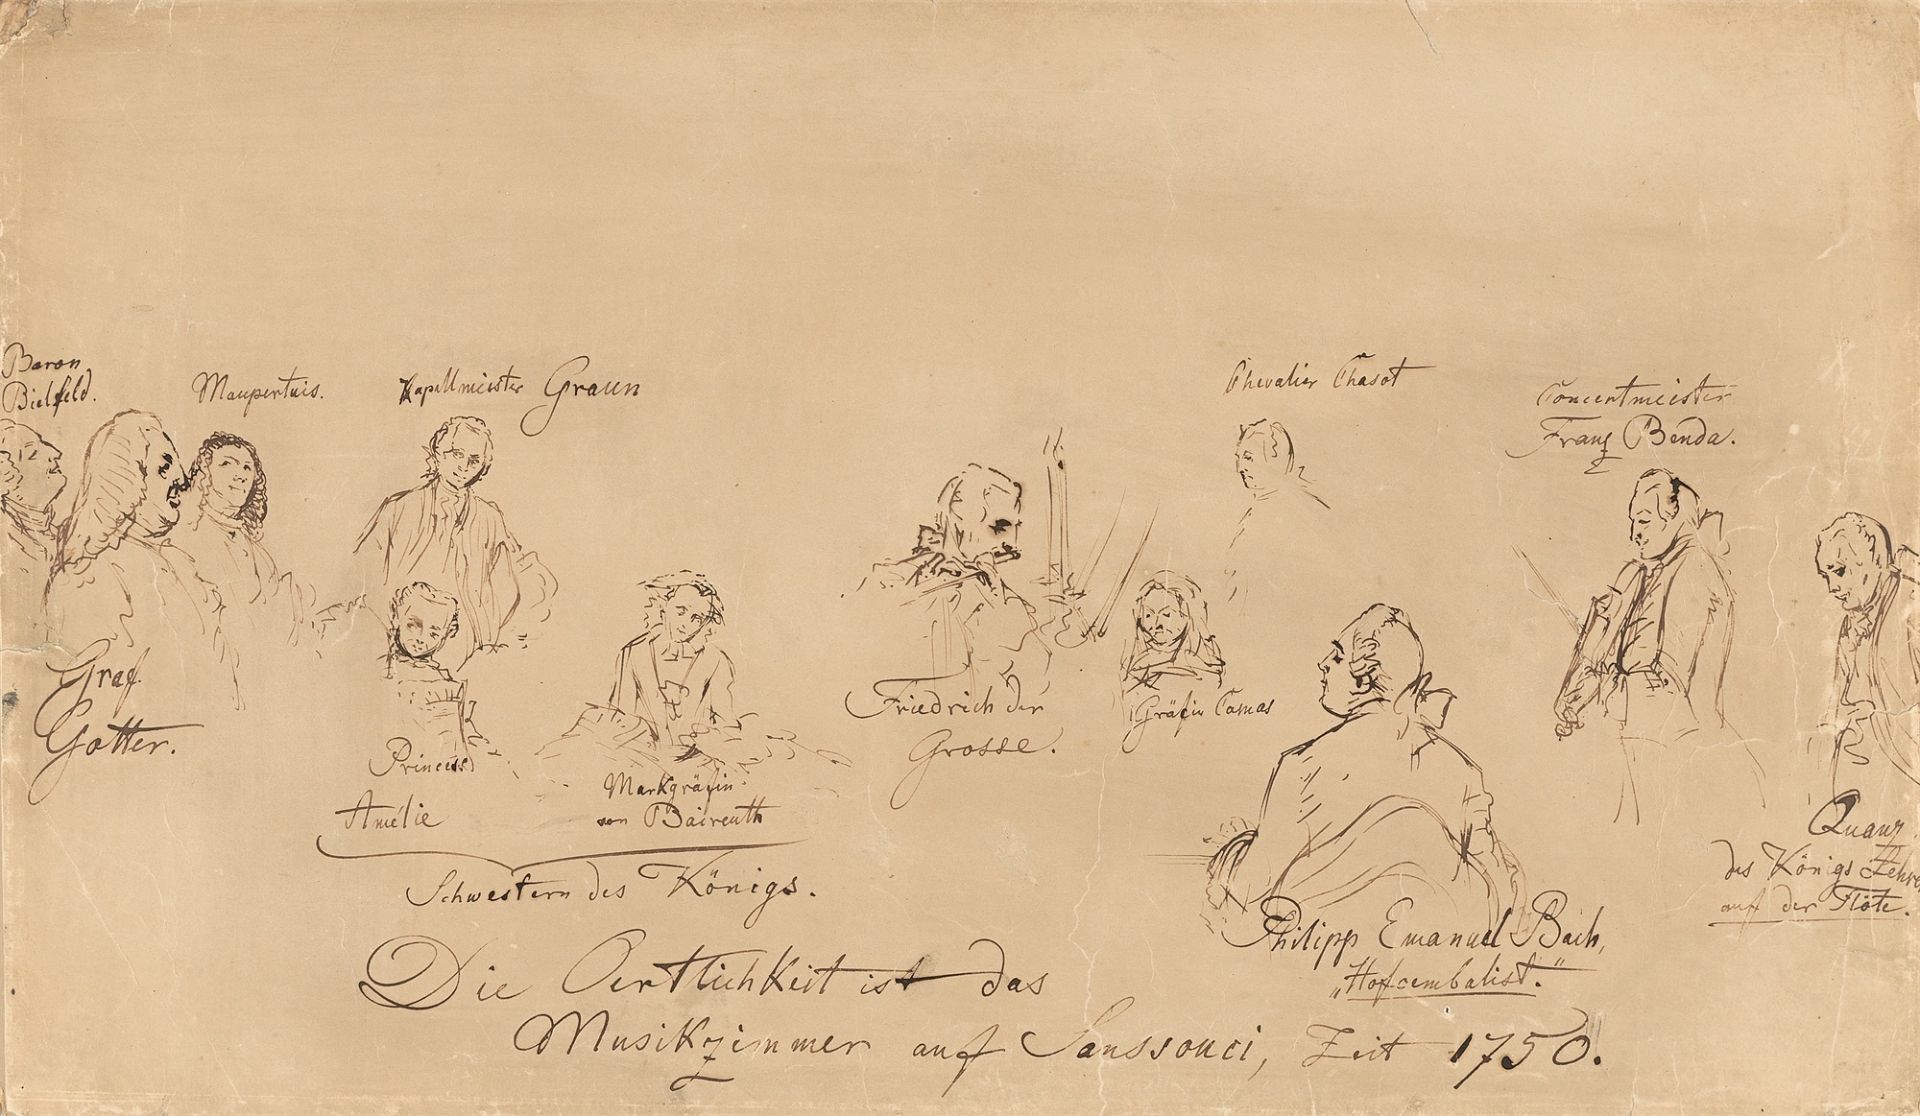 Baron
Bielfeld.
Maupertuis.
Kapellmeister Graun
Chevalier Chasot
Concertmeister
Franz Benda.
Graf
Gotter.
Princess
Amélie
Markgräfin
von Baireuth
Schwestern des Königs.
Friedrich der
Grosse.
Gräfin Camas
Philipp Emanuel Bach,
„Hofcembalist.“
Quanz
des Königs Lehre
auf der Flöte.
Die Oertlichkeit ist das
Musikzimmer auf Sanssouci, Zeit 1750.